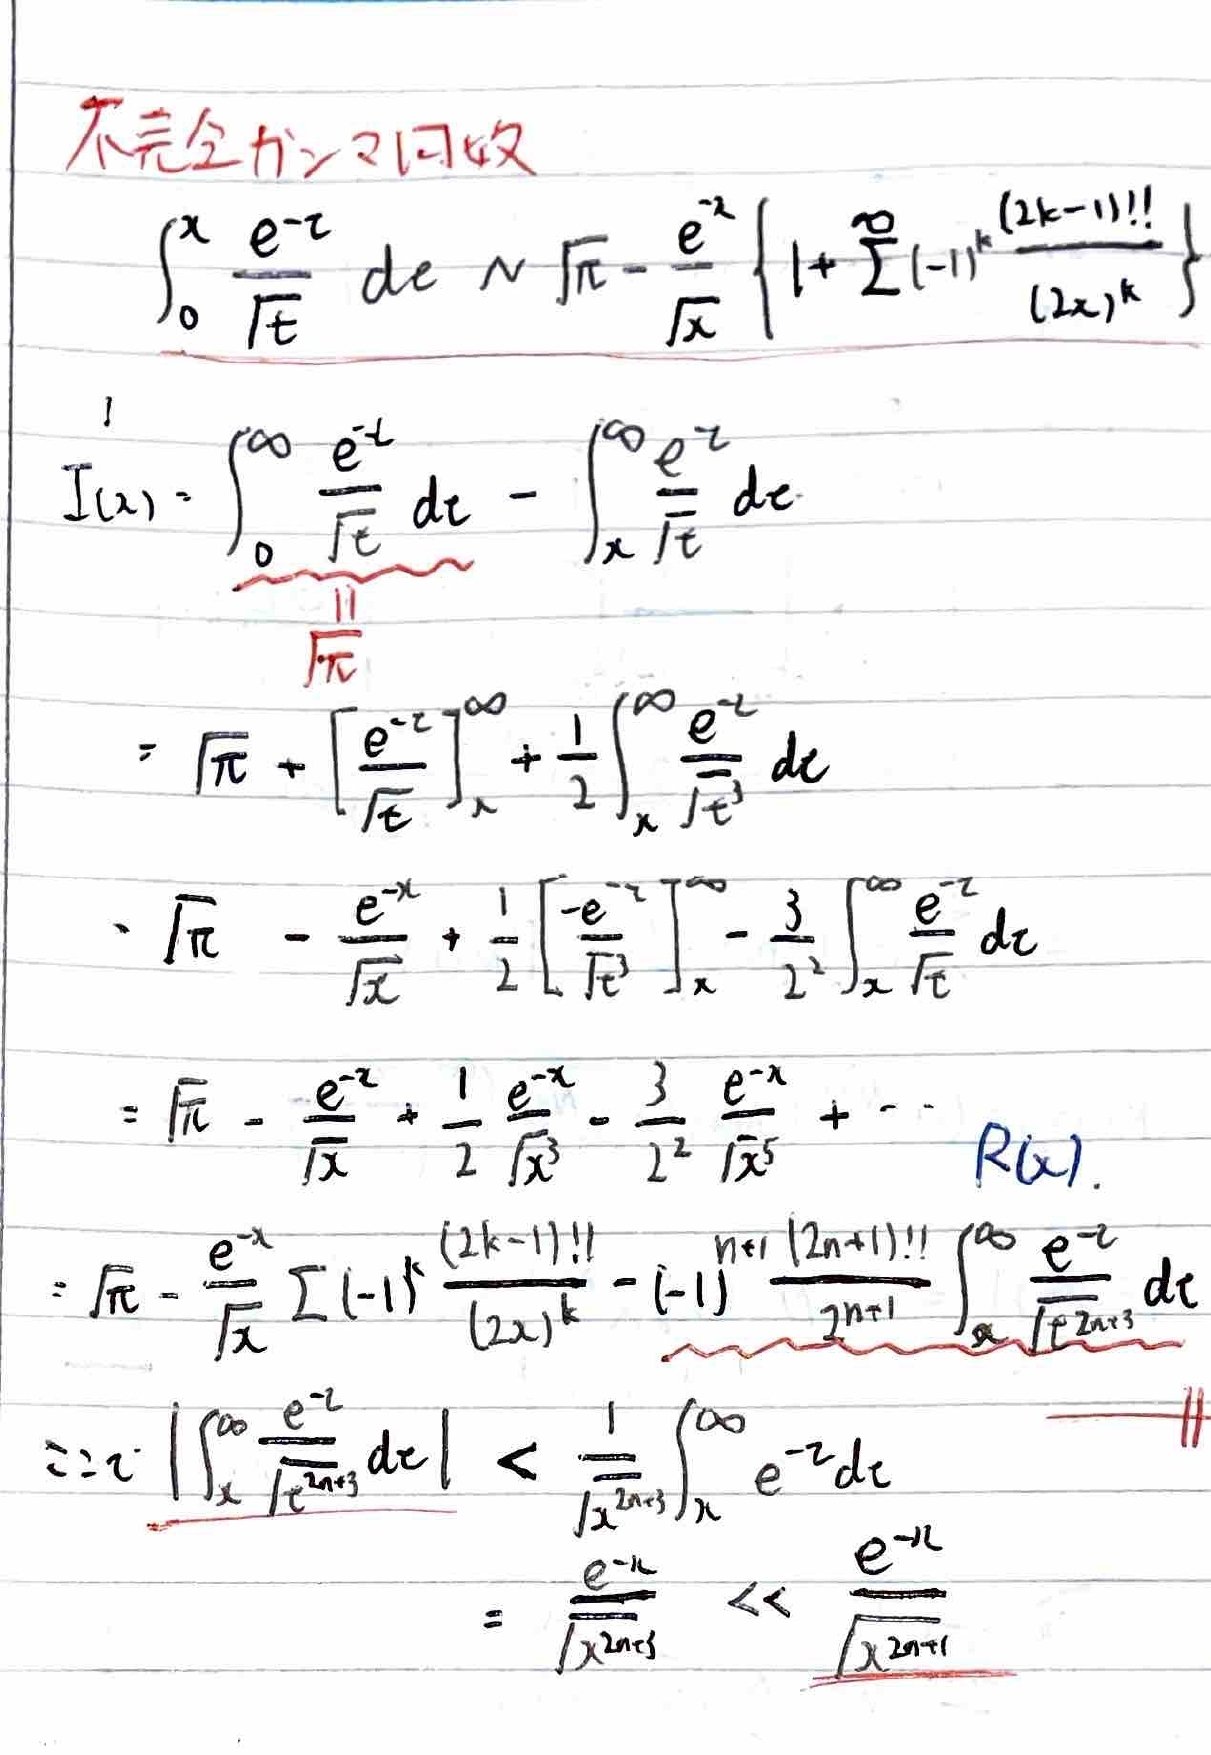 不完全ガンマ関数
∫₀ˣ e^{-t}/√t dt ~ √π - e^{-x}/√x { 1 + Σ^∞ (-1)^k (2k-1)!!/(2x)^k }
I(x) = ∫₀^∞ e^{-t}/√t dt - ∫ₓ^∞ e^{-t}/√t dt
||
√π
= √π + [e^{-t}/√t]ₓ^∞ + 1/2 ∫ₓ^∞ e^{-t}/√t³ dt
= √π - e^{-x}/√x + 1/2 [-e^{-t}/√t³]ₓ^∞ - 3/2² ∫ₓ^∞ e^{-t}/√t dt
= √π - e^{-x}/√x + 1/2 e^{-x}/√x³ - 3/2² e^{-x}/√x⁵ + ...
R(x).
= √π - e^{-x}/√x Σ (-1)^k (2k-1)!!/(2x)^k - (-1)^{n+1} (2n+1)!!/2^{n+1} ∫ₓ^∞ e^{-t}/√t^{2n+3} dt
ここで |∫ₓ^∞ e^{-t}/√t^{2n+3} dt| < 1/√x^{2n+3} ∫ₓ^∞ e^{-t} dt
= e^{-x}/√x^{2n+3} << e^{-x}/√x^{2n+1}